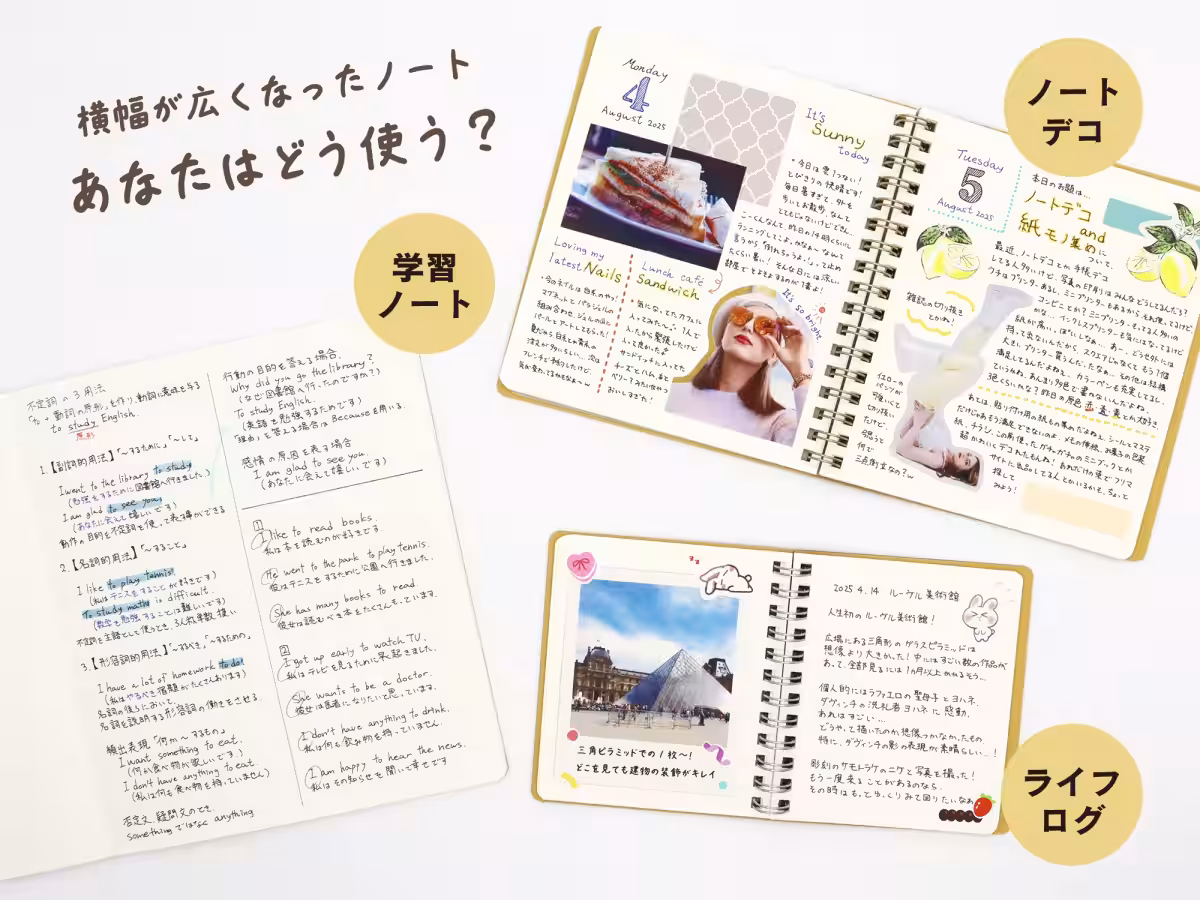 横幅が広くなったノート
あなたはどう使う?
学習
ノート
ノート
デコ
ライフ
ログ
不定詞の3用法
「to + 動詞の原形」を作り、動詞に意味を与る
to study English.
原形
1.【副詞的用法】「〜するために」「〜して」
I went to the library to study
(勉強をするために図書館へ行きました。)
I am glad to see you.
(あなたに会えて嬉しいです)
動作の目的を不定詞を使って表す事ができる
2.【名詞的用法】「〜すること」
I like to play tennis!
(私はテニスをすることが好きです)
To study maths is difficult.
(数学を勉強することは難しいです)
不定詞を主語として使うとき、3人称単数扱い
3.【形容詞的用法】「〜するべき、〜するための」
I have a lot of homework to do!
(私はやるべき宿題がたくさんあります)
名詞の後ろにおいて、
名詞を説明する形容詞の働きをさせる。
頻出表現「何か〜するもの」
I want something to eat.
(何か食べ物が欲しいです)
I don't have anything to eat
(私は何も食べ物を持っていません)
否定文、疑問文のとき、
something ではなく anything
行動の目的を答える場合、
Why did you go the library?
(なぜ図書館へ行ったのですか?)
To study English.
(英語を勉強するためです)
「理由」を答える場合は Because を用いる。
感情の原因を表す場合
I am glad to see you.
(あなたに会えて嬉しいです)
1
I like to read books.
私は本を読むのが好きです。
He went to the park to play tennis.
彼はテニスをするために公園へ行きました。
She has many books to read.
彼女は読むべき本をたくさんもっています。
2
I got up early to watch TV.
私はテレビを見るために早起きました。
She wants to be a doctor.
彼女は医者になりたいと思っています。
I don't have anything to drink.
私は何も飲み物を持っていません。
I am happy to hear the news.
私はその知らせを聞いて幸せです
Monday
4
August 2025
It's
Sunny
today
・今日は雲1つない!
とびきりの快晴です!
毎日暑すぎて、外を
歩いてお散歩、なんて
とてもじゃないけどできん。
Loving my
latest Nails
Lunch café
Sandwich
It's so bright
気になってたカフェに
入ってみた〜。1人で
入ったから緊張したけど
入って良かったよ
サンドイッチ、入ってた
チーズとハム、あと
ベリー?みたいなやつ
おいしすぎた!
Tuesday
5
August 2025
本日のお題は…
ノートデコ
and
紙モノ集め
について。
雑誌の切り抜き
とかね!
イエローの
パンツが
可愛くて
切り抜い
たけど、
三点倒立なの?w
三角ピラミッドでの1枚〜!
どこを見ても建物の装飾がキレイ
2025 4.14 ルーヴル美術館
人生初のルーヴル美術館!
広場にある三角形のガラスピラミッドは
想像より大きかった!中にはすごい数の作品が
あって、全部見るには1カ月以上かかるそう…
個人的にはラファエロの聖母子とヨハネ、
ダヴィンチの洗礼者ヨハネに感動。
あれはすごい…
どうやって描いたのか想像つかなかったもの
特に、ダヴィンチの影の表現が素晴らしい…!
彫刻のサモトラケのニケと写真を撮った!
もう一度来ることがあるのなら、
その時はもっとゆっくりみて回りたいなぁ